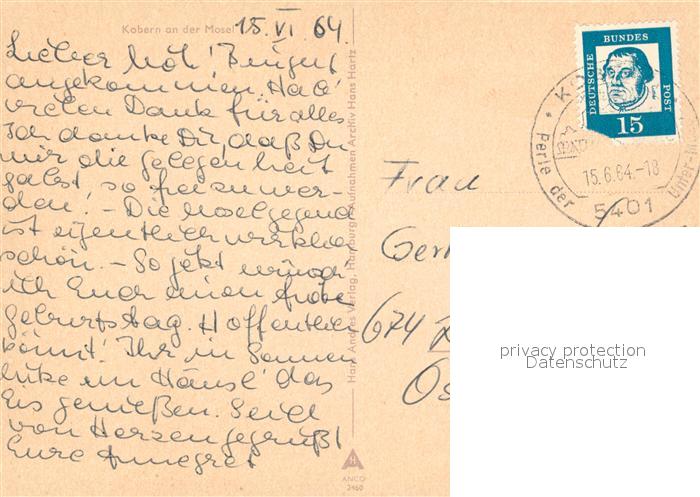 Kobern an der Mosel
15. VI. 64.
angekommen. Hab'
vielen Dank für alles
Ich danke Dir, daß Du
mir die Gelegenheit
gabst so frei zu wer-
den. - Die Moselgegend
ist eigentlich
schön. - So jetzt wünsch
ich Euch einen frohen
Geburtstag. Hoffentlich
könnt' Ihr in
im Häusl' das
Eis genießen. Seid
von Herzen gegrüßt
Eure Annegret
Hans Andres Verlag, Hamburg · Aufnahmen Archiv Hans Hartz
ANCO
Frau
674
DEUTSCHE BUNDES POST
15
Perle der Unter
15.6.64.-18
5401
privacy protection
Datenschutz